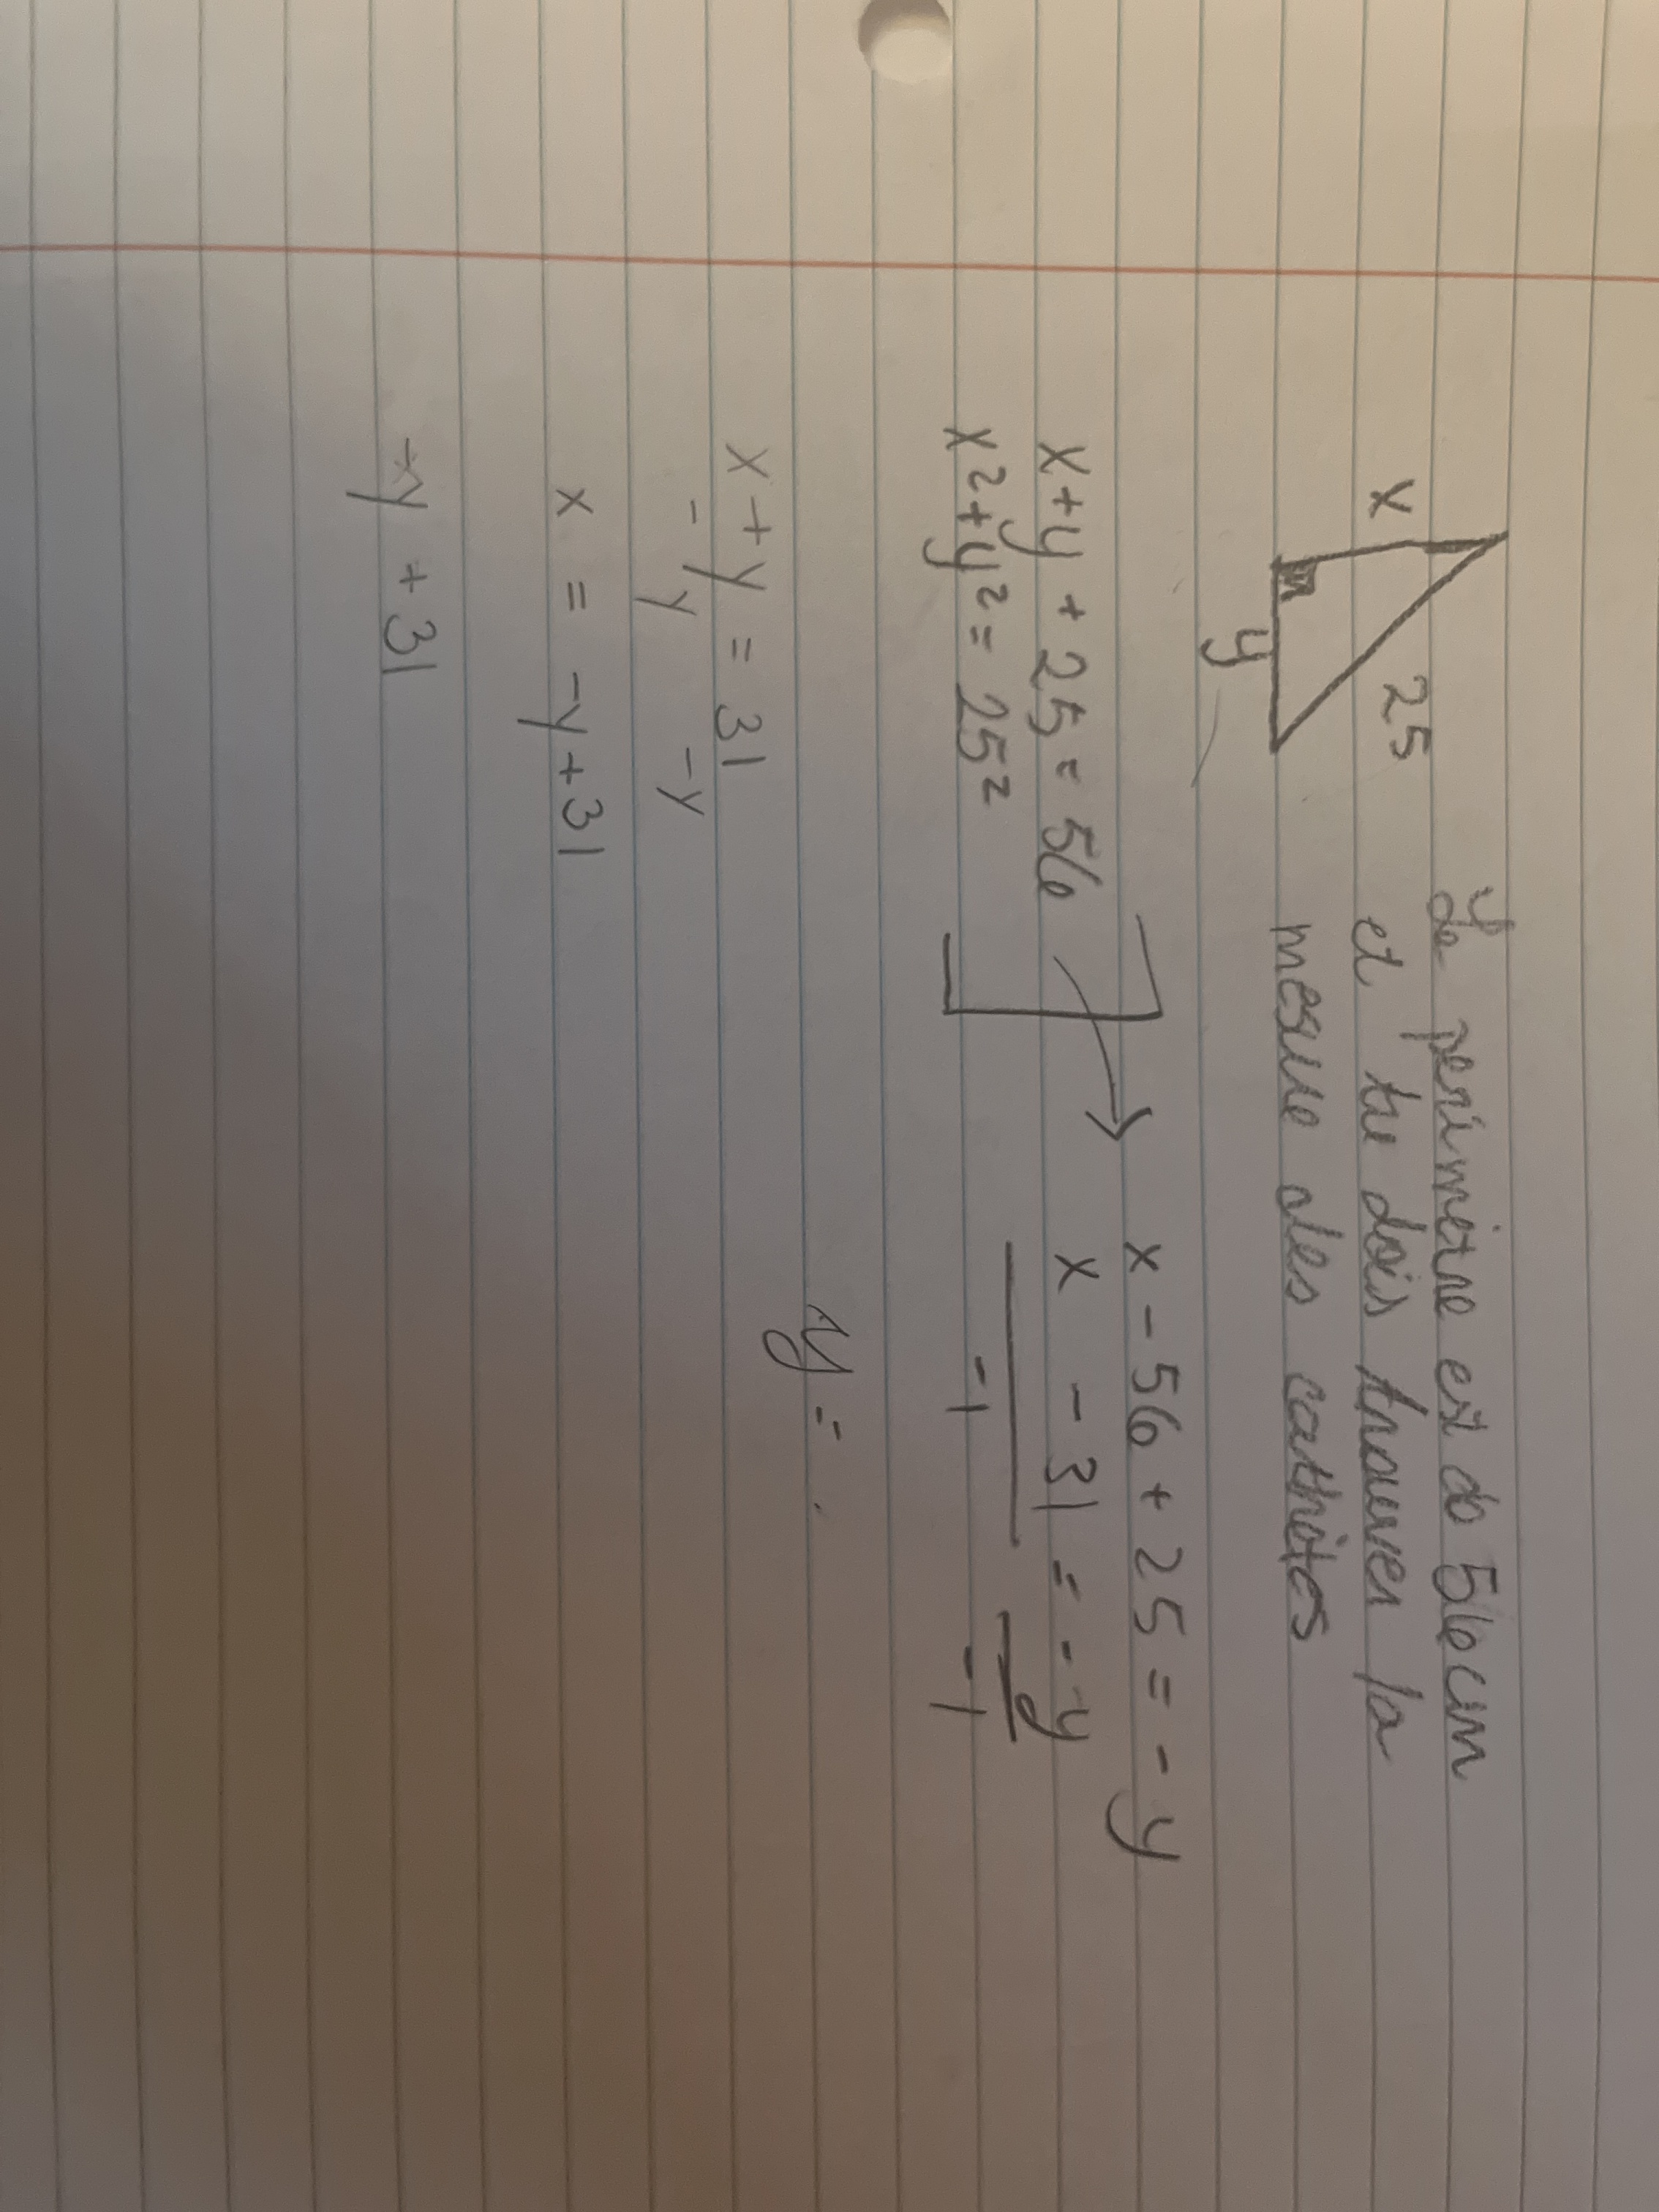 Le perimètre est de 56cm
et tu dois trouver la
mesure des cathètes
x
25
y
x+y + 25 = 56
x²+y² = 25²
x - 56 + 25 = -y
x - 31 = -y
-1 -1
y =
x + y = 31
- y -y
x = -y + 31
-y + 31